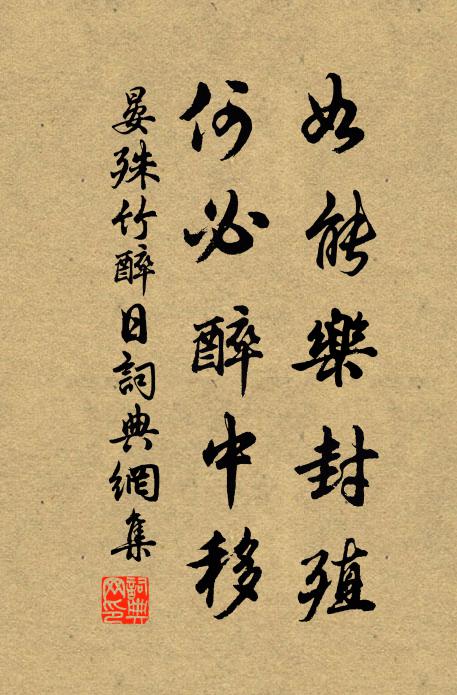 如能樂封殖
何必醉中移
晏殊竹醉日詞典網集
詞典網印